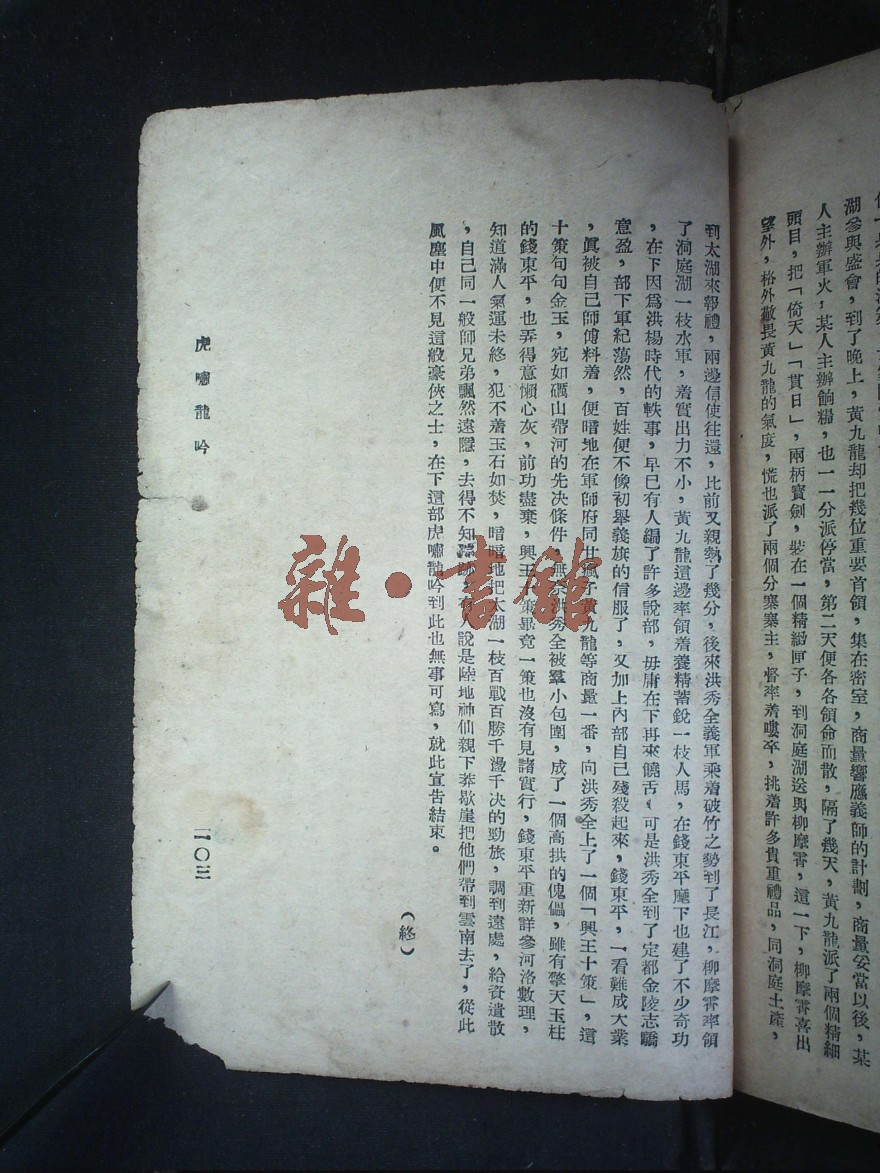 湖參與盛會，到了晚上，黃九龍却把幾位重要首領，集在密室，商量響應義師的計劃，商量妥當以後，某
人主辦軍火，某人主辦餉糧，也一一分派停當，第二天便各各領命而散，隔了幾天，黃九龍派了兩個精細
頭目，把「倚天」「貫日」，兩柄寶劍，裝在一個精緻匣子，到洞庭湖送與柳摩霄，這一下，柳摩霄喜出
望外，格外敬畏黃九龍的氣度，慌也派了兩個分寨寨主，督率着嘍卒，挑着許多貴重禮品，同洞庭土產，
到太湖來報禮，兩邊信使往還，比前又親熱了幾分，後來洪秀全義軍乘着破竹之勢到了長江，柳摩霄率領
了洞庭湖一枝水軍，着實出力不小，黃九龍這邊率領着養精蓄銳一枝人馬，在錢東平麾下也建了不少奇功
，在下因爲洪楊時代的軼事，早已有人編了許多說部，毋庸在下再來饒舌，可是洪秀全到了定都金陵志驕
意盈，部下軍紀蕩然，百姓便不像初舉義旗的信服了，又加上內部自己殘殺起來，錢東平，一看難成大業
，眞被自己師傅料着，便暗地在軍師府同甘瘋子黃九龍等商量一番，向洪秀全上了一個「興王十策」，這
十策句句金玉，宛如礪山帶河的先决條件，無奈洪秀全被羣小包圍，成了一個高拱的傀儡，雖有擎天玉柱
的錢東平，也弄得意懶心灰，前功盡棄，興王十策畢竟一策也沒有見諸實行，錢東平重新詳參河洛數理，
知道滿人氣運未終，犯不着玉石如焚，暗暗地把太湖一枝百戰百勝千邊千决的勁旅，調到遠處，給資遣散
，自己同一般師兄弟飄然遠隱，去得不知 有人說是陸地神仙親下莽歇崖把他們帶到雲南去了，從此
風塵中便不見這般豪俠之士，在下這部虎嘯龍吟到此也無事可寫，就此宣告結束。
（終）
虎嘯龍吟
一〇三
雜·書館